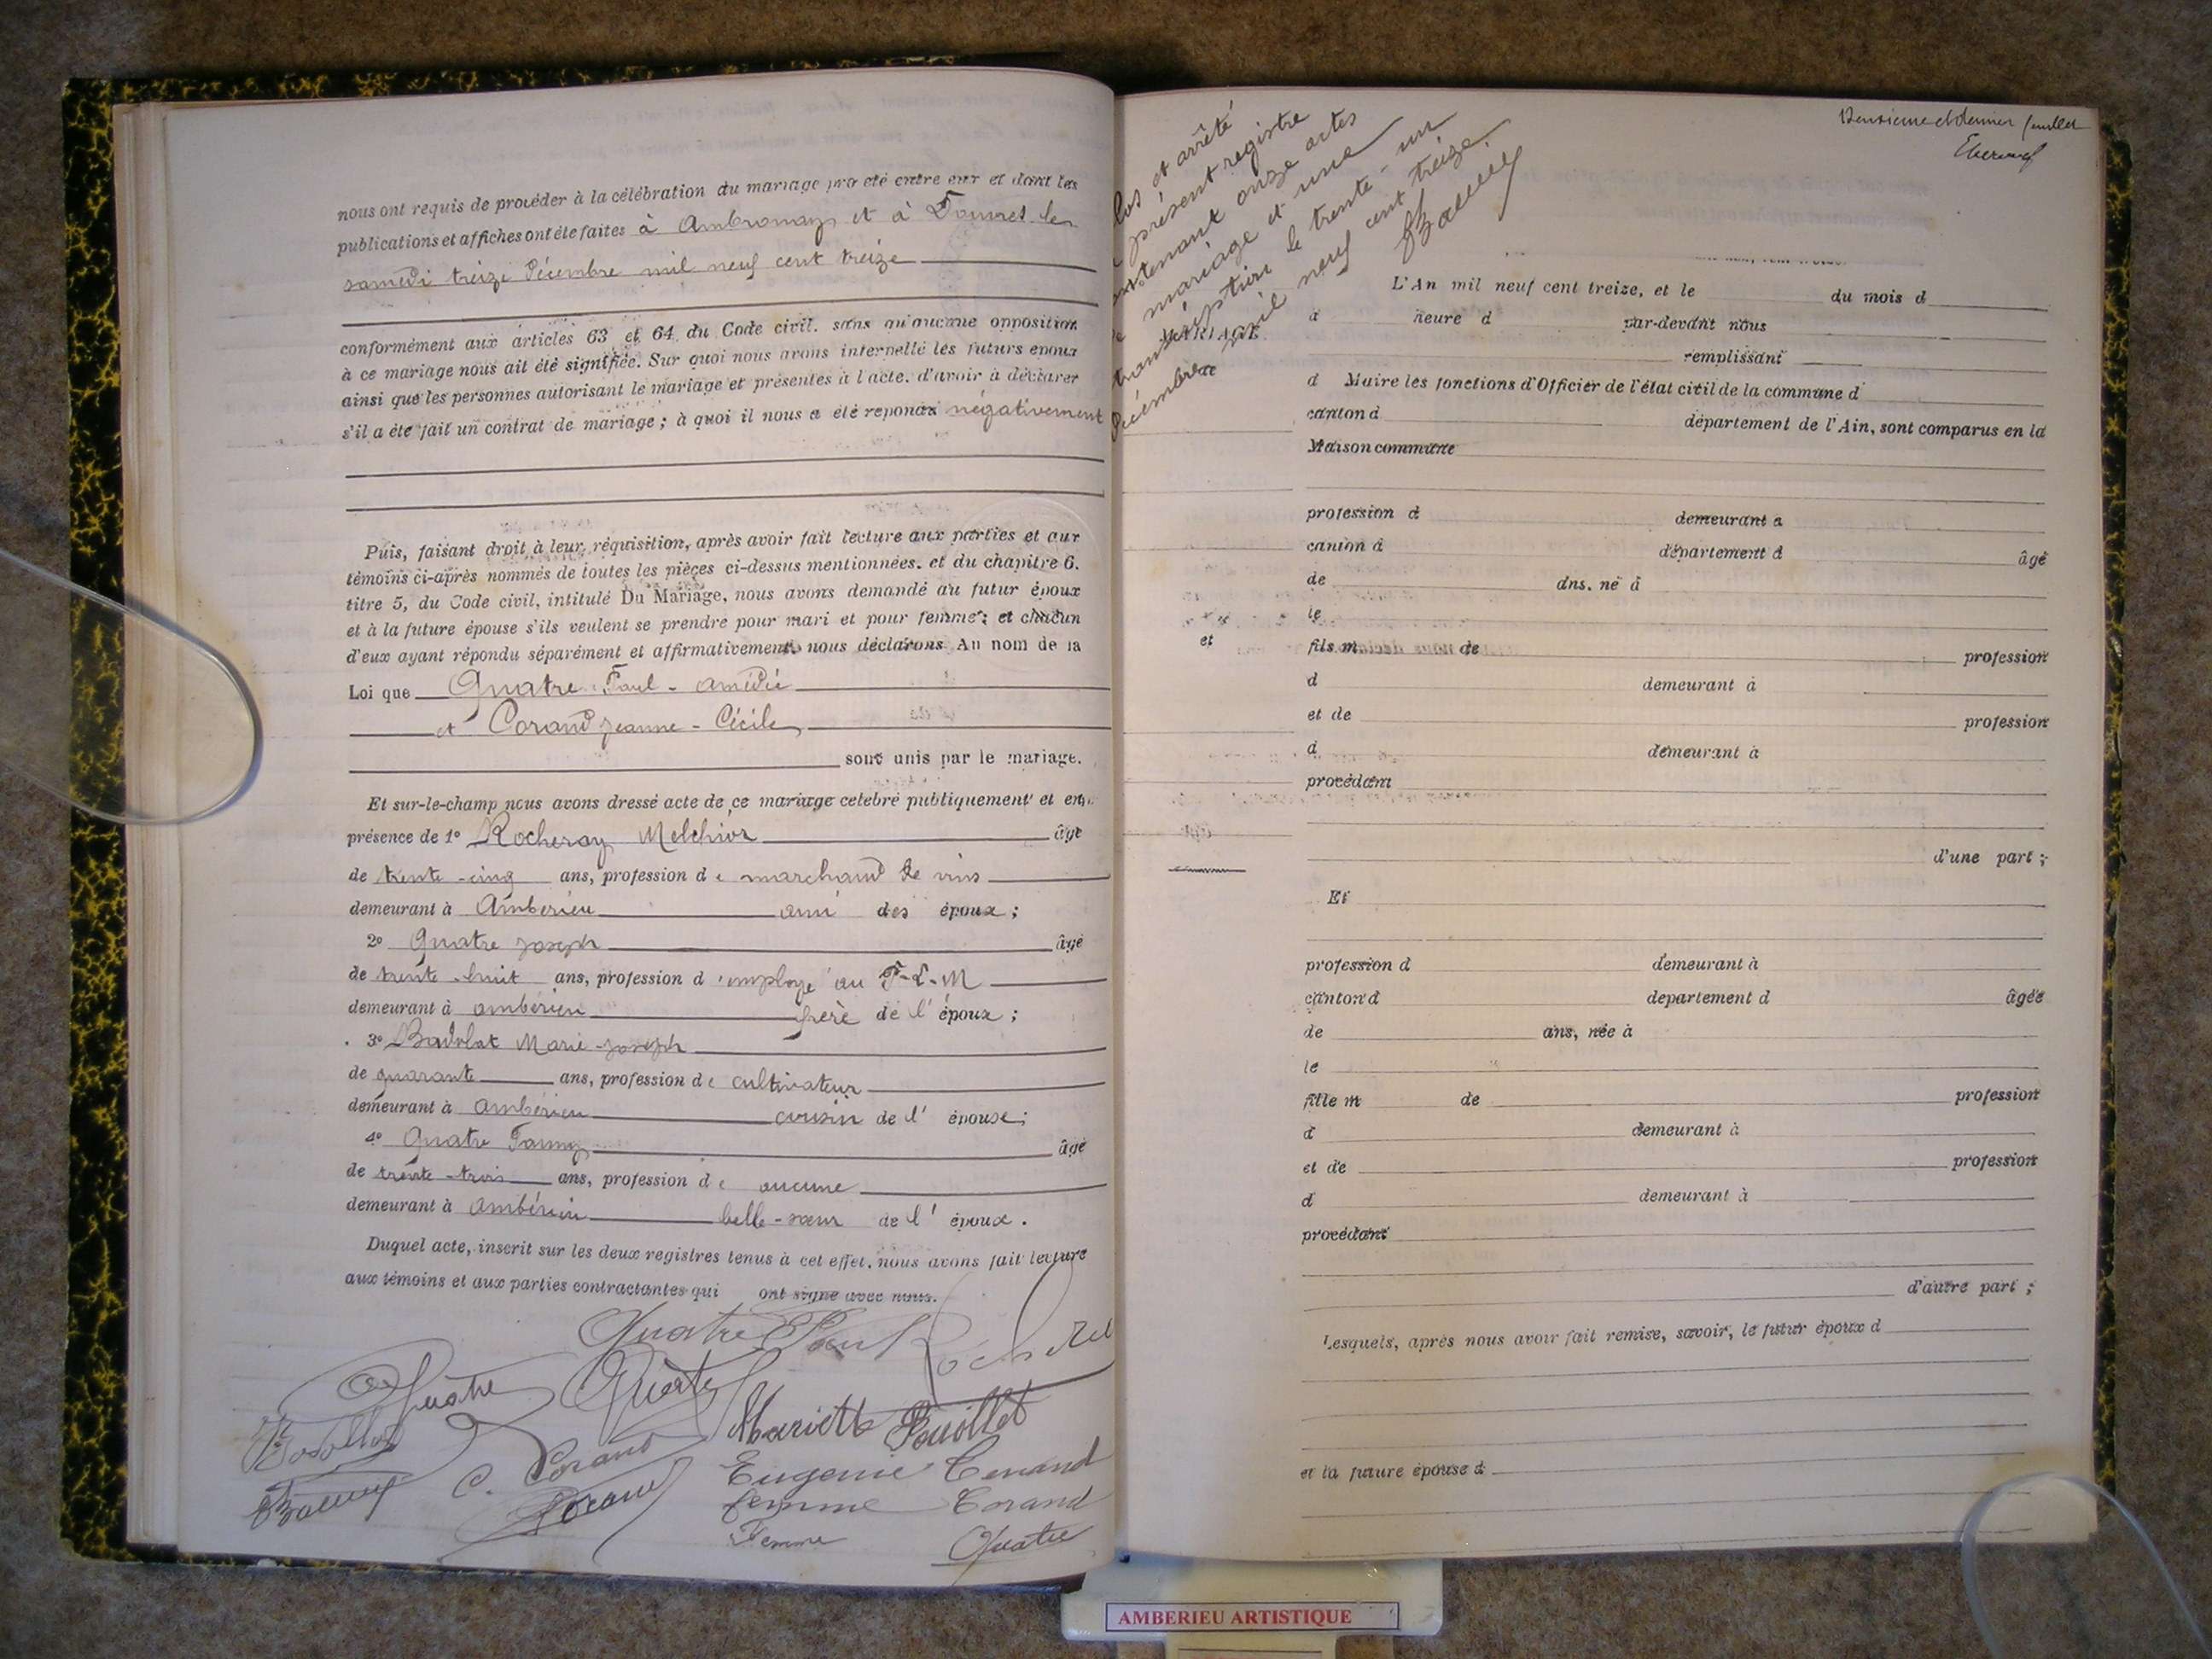 nous ont requis de procéder à la célébration du mariage projeté entre eux et dont les
publications et affiches ont été faites à Ambronay et à Douvres les
samedi treize Décembre mil neuf cent treize
conformément aux articles 63 et 64 du Code civil, sans qu'aucune opposition
à ce mariage nous ait été signifiée. Sur quoi nous avons interpellé les futurs époux
ainsi que les personnes autorisant le mariage et présentes à l'acte, d'avoir à déclarer
s'il a été fait un contrat de mariage ; à quoi il nous a été répondu négativement
Puis, faisant droit à leur réquisition, après avoir fait lecture aux parties et aux
témoins ci-après nommés de toutes les pièces ci-dessus mentionnées, et du chapitre 6,
titre 5, du Code civil, intitulé Du Mariage, nous avons demandé au futur époux
et à la future épouse s'ils veulent se prendre pour mari et pour femme ; et chacun
d'eux ayant répondu séparément et affirmativement, nous déclarons Au nom de la
Loi que Quatre Paul - Amédée
et Corand Jeanne - Cécile
sont unis par le mariage.
Et sur-le-champ nous avons dressé acte de ce mariage célébré publiquement et en
présence de 1° Rocheray Melchior âgé
de trente-cinq ans, profession de marchand de vins
demeurant à Ambérieu ami des époux ;
2° Quatre Joseph âgé
de trente-huit ans, profession d'employé au P-L-M
demeurant à Ambérieu frère de l'époux ;
3° Marie-Joseph
de quarante ans, profession de cultivateur
demeurant à Ambérieu cousin de l'épouse ;
4° Quatre Fanny âgé
de trente-trois ans, profession de aucune
demeurant à Ambérieu belle-sœur de l'époux.
Duquel acte, inscrit sur les deux registres tenus à cet effet, nous avons fait lecture
aux témoins et aux parties contractantes qui ont signé avec nous.
Quatre Paul
Quatre Quatre
Mariette Pouillet
C. Corand
Eugenie
Corand
femme Corand
Femme Quatre
et arrêté
présent registre
contenant onze actes
de mariage et une
transcription le trente-un
Décembre mil neuf cent treize
MARIAGE
et
Deuxième et dernier feuillet
L'An mil neuf cent treize, et le du mois d
à heure d par-devant nous
remplissant
d Maire les fonctions d'Officier de l'état civil de la commune d
canton d département de l'Ain, sont comparus en la
Maison commune
profession d demeurant à
canton d département d âgé
de ans, né à
le
fils m de profession
d demeurant à
et de profession
d demeurant à
procédant
d'une part ;
Et
profession d demeurant à
canton d département d âgée
de ans, née à
le
fille m de profession
d demeurant à
et de profession
d demeurant à
procédant
d'autre part ;
Lesquels, après nous avoir fait remise, savoir, le futur époux d
et la future épouse d
AMBERIEU ARTISTIQUE